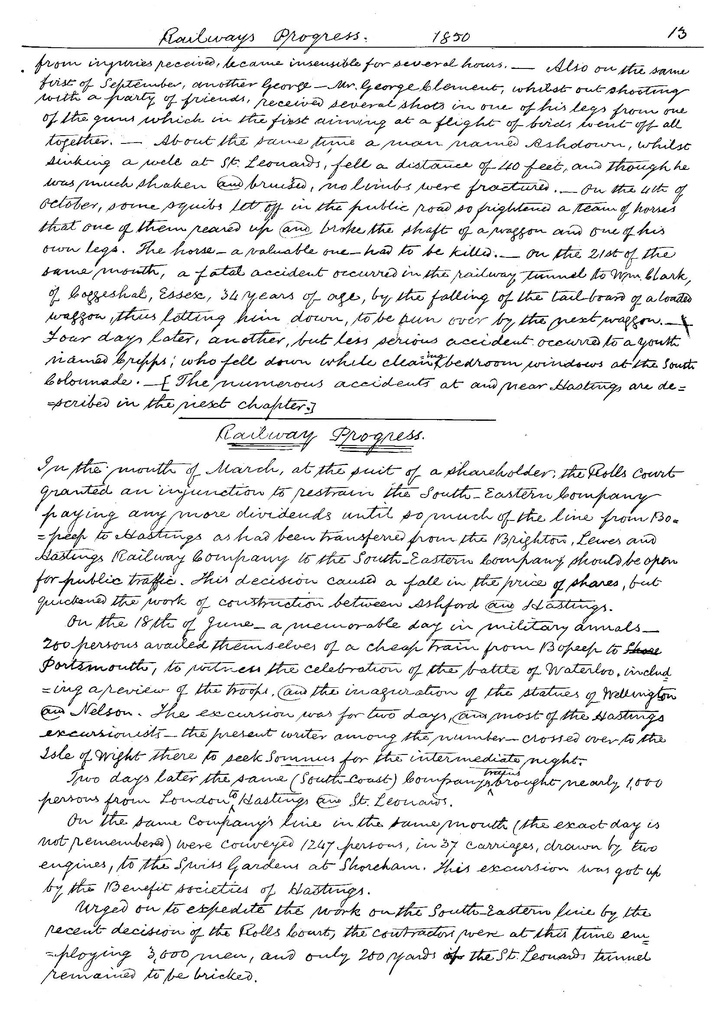 Railways Progress. 1850 13
from injuries received, became insensible for several hours. — Also on the same
first of September, another George — Mr. George Clement, whilst out shooting
with a party of friends, received several shots in one of his legs from one
of the guns which in the first aiming at a flight of birds went off all
together. — About the same time a man named Ashdown, whilst
sinking a well at St. Leonards, fell a distance of 40 feet, and though he
was much shaken and bruised, no limbs were fractured. — On the 4th of
October, some squibs let off in the public road so frightened a team of horses
that one of them reared up and broke the shaft of a waggon and one of his
own legs. The horse — a valuable one — had to be killed. — On the 21st of the
same month, a fatal accident occurred in the railway tunnel to Wm. Clark,
of Coggeshal, Essex, 34 years of age, by the falling of the tail-board of a loaded
waggon, thus letting him down, to be run over by the next waggon. —
Four days later, another, but less serious accident occurred to a youth
named Cripps; who fell down while cleaning bedroom windows at the South
Colonnade. — [The numerous accidents at and near Hastings are de=
=scribed in the next chapter.]
Railway Progress.
In the month of March, at the suit of a shareholder, the Rolls Court
granted an injunction to restrain the South-Eastern Company
paying any more dividends until so much of the line from Bo=
=peep to Hastings as had been transferred from the Brighton, Lewes and
Hastings Railway Company to the South-Eastern Company should be open
for public traffic. This decision caused a fall in the price of shares, but
quickened the work of construction between Ashford and Hastings.
On the 18th of June — a memorable day in military annals —
200 persons availed themselves of a cheap train from Bopeep to
Portsmouth, to witness the celebration of the battle of Waterloo, includ=
=ing a review of the troops, and the inaguration of the statues of Wellington
and Nelson. The excursion was for two days, and most of the Hastings
excursionists — the present writer among the number — crossed over to the
Isle of Wight there to seek Somnus for the intermediate night.
Two days later the same (South-Coast) Company's trains brought nearly 1,000
persons from London to Hastings and St. Leonards.
On the same Company's line in the same month (the exact day is
not remembered) were conveyed 1247 persons, in 37 carriages, drawn by two
engines, to the Swiss Gardens at Shoreham. This excursion was got up
by the Benefit societies of Hastings.
Urged on to expedite the work on the South-Eastern line by the
recent decision of the Rolls Court, the contractors were at this time em=
=ploying 3,000 men, and only 200 yards of the St. Leonards tunnel
remained to be bricked.